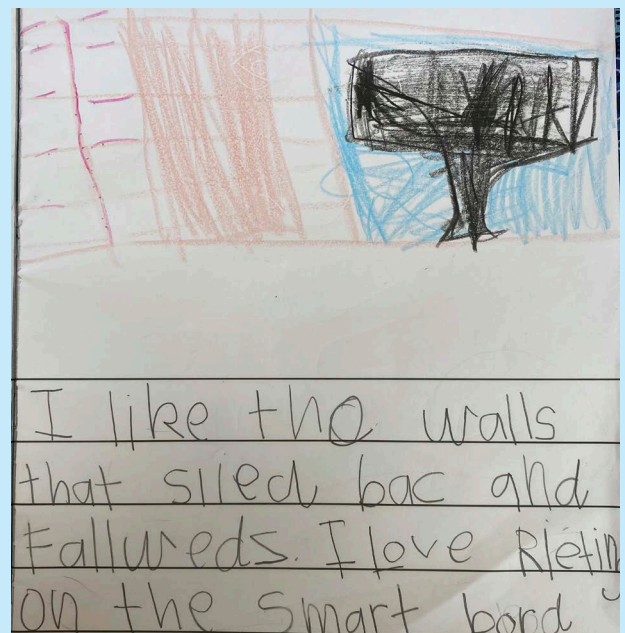 I like tho walls
that slled bac and
Fallweds. I love Rietin
on the smart bord